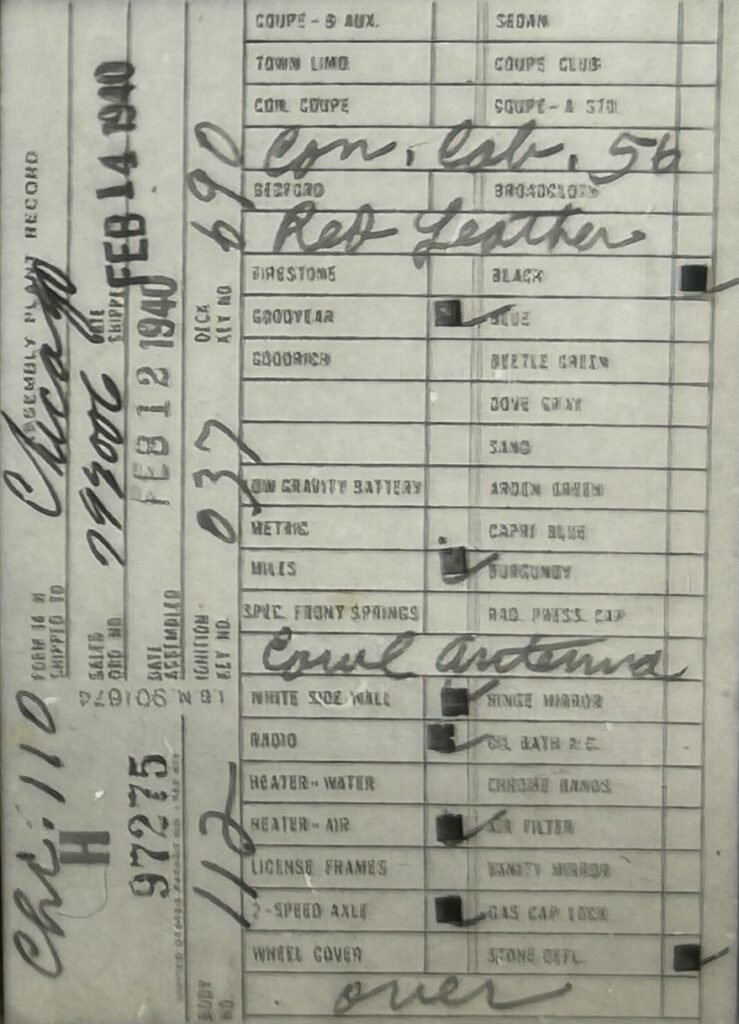 COUPE - B AUX. SEDAN
TOWN LIMO COUPE CLUB
CON. COUPE COUPE - A STD.
Con. Cab. 56
BEDFORD BROADCLOTH
Red Leather
FIRESTONE BLACK
GOODYEAR BLUE
GOODRICH BEETLE GREEN
DOVE GRAY
SAND
LOW GRAVITY BATTERY ARDEN GREEN
METRIC CAPRI BLUE
MILES BURGUNDY
SPEC. FRONT SPRINGS RAD. PRESS CAP
Cowl Antenna
WHITE SIDE WALL HINGE MIRROR
RADIO OIL BATH A.C.
HEATER - WATER CHROME BANDS
HEATER - AIR AIR FILTER
LICENSE FRAMES VANITY MIRROR
2-SPEED AXLE GAS CAP LOCK
WHEEL COVER STONE DEFL.
over
ASSEMBLY PLANT RECORD
FORM 14
SHIPPED TO Chicago
Chi. 110
H
SALES ORD NO. 793006
DATE SHIPPED FEB 14 1940
97275
DATE ASSEMBLED FEB 12 1940
BODY NO. 112
IGNITION KEY NO. 037
DECK KEY NO. 690